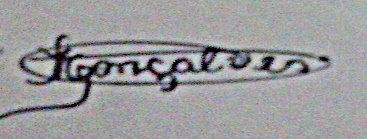 Gonçalves